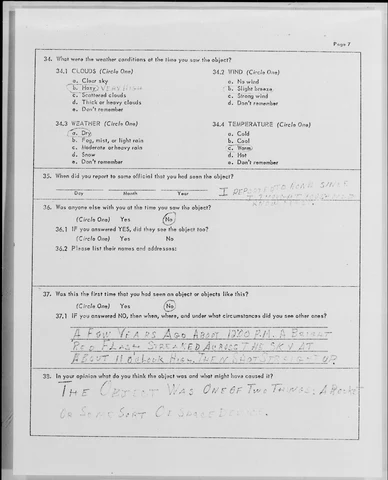 Page 7
34. What were the weather conditions at the time you saw the object?
34.1 CLOUDS (Circle One) 34.2 WIND (Circle One)
a. Clear sky a. No wind
b. Hazy VERY HIGH b. Slight breeze
c. Scattered clouds c. Strong wind
d. Thick or heavy clouds d. Don't remember
e. Don't remember
34.3 WEATHER (Circle One) 34.4 TEMPERATURE (Circle One)
a. Dry a. Cold
b. Fog, mist, or light rain b. Cool
c. Moderate or heavy rain c. Warm
d. Snow d. Hot
e. Don't remember e. Don't remember
35. When did you report to some official that you had seen the object?
I
Day Month Year
36. Was anyone else with you at the time you saw the object?
(Circle One) Yes No
36.1 IF you answered YES, did they see the object too?
(Circle One) Yes No
36.2 Please list their names and addresses:
37. Was this the first time that you had seen an object or objects like this?
(Circle One) Yes No
37.1 IF you answered NO, then when, where, and under what circumstances did you see other ones?
A FEW YEARS AGO ABOUT P.M. A BRIGHT
RED FLASH STREAKED ACROSS THE SKY AT
ABOUT 11 O'CLOCK HIGH, THEN SHOT STRAIGHT UP.
38. In your opinion what do you think the object was and what might have caused it?
THE OBJECT WAS ONE OF TWO THINGS; A ROCKET
OR SOME SORT OF SPACE